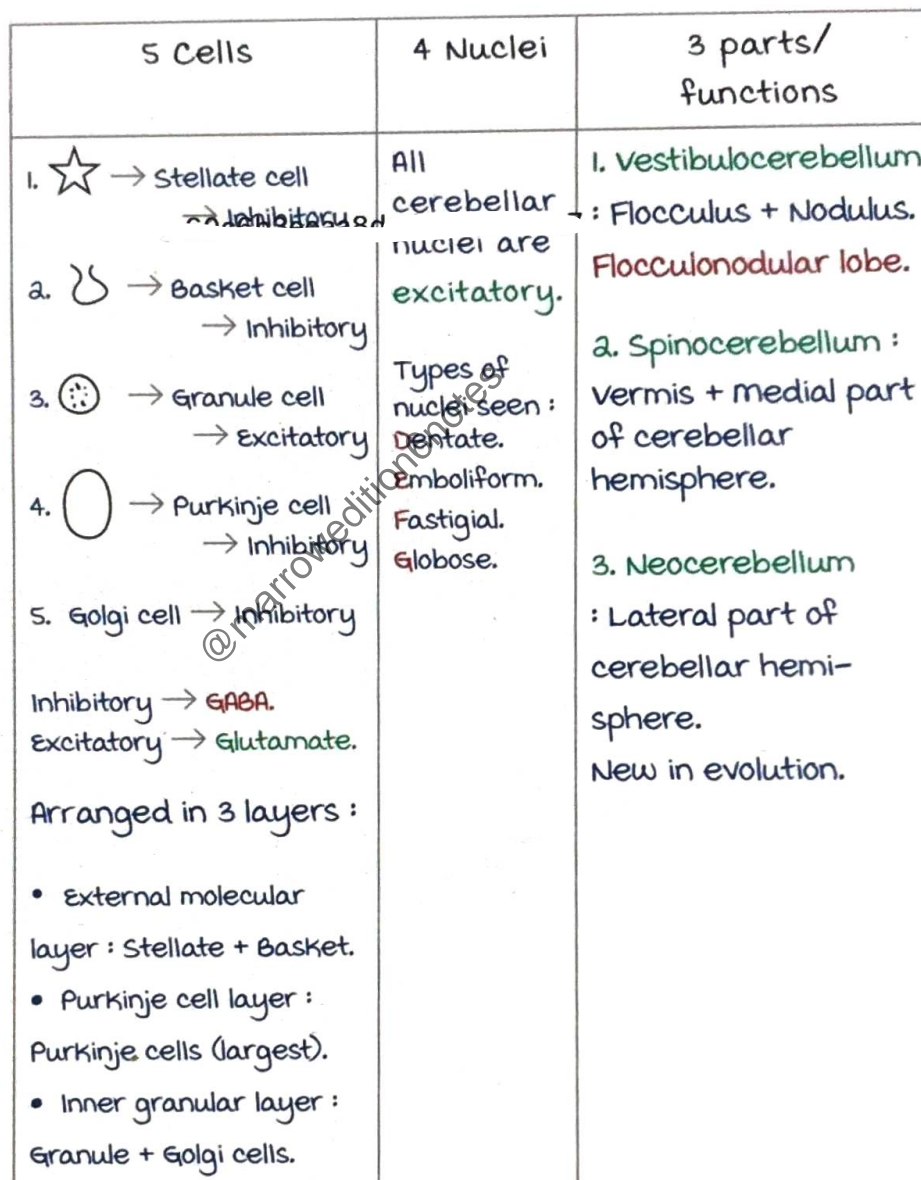 5 Cells
4 Nuclei
3 parts/
functions
1. → Stellate cell
→ Inhibitory
2. → Basket cell
→ Inhibitory
3. → Granule cell
→ Excitatory
4. → Purkinje cell
→ Inhibitory
5. Golgi cell → Inhibitory
Inhibitory → GABA.
Excitatory → Glutamate.
Arranged in 3 layers :
• External molecular
layer : Stellate + Basket.
• Purkinje cell layer :
Purkinje cells (largest).
• Inner granular layer :
Granule + Golgi cells.
All
cerebellar
nuclei are
excitatory.
Types of
nuclei seen :
Dentate.
Emboliform.
Fastigial.
Globose.
1. Vestibulocerebellum
: Flocculus + Nodulus.
Flocculonodular lobe.
2. Spinocerebellum :
vermis + medial part
of cerebellar
hemisphere.
3. Neocerebellum
: Lateral part of
cerebellar hemi-
sphere.
New in evolution.
@marroweditionenotes